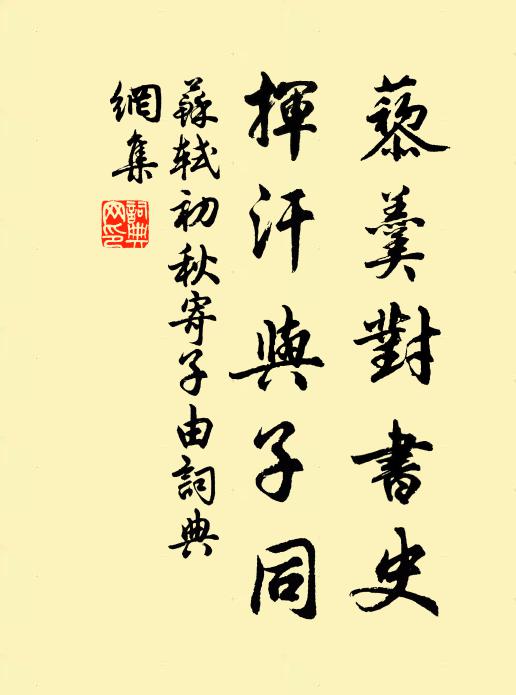 藜羹對書史
揮汗與子同
蘇軾初秋寄子由詞典
網集
詞典
网印